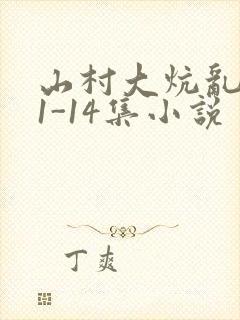 山村大炕亂
1-14集小説
丁爽